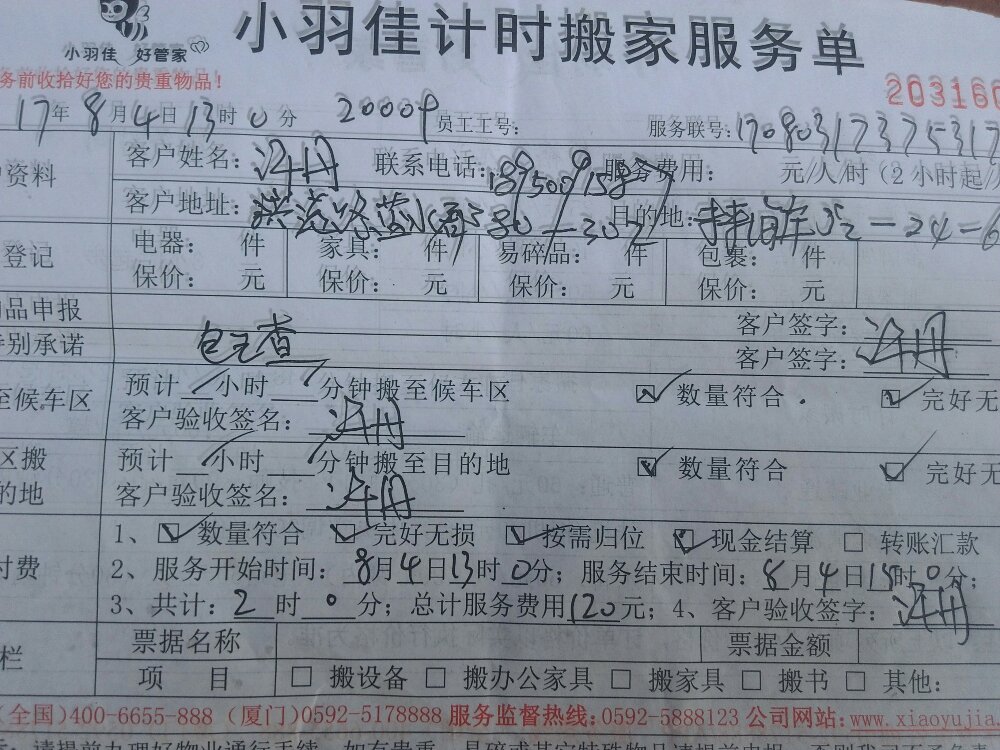 小羽佳 好管家
小羽佳计时搬家服务单
务前收拾好您的贵重物品！
203160
17年8月4日13时0分 20009 员工工号： 服务联号：1708031737531
资料 客户姓名： 联系电话： 服务费用： 元/人/时（2小时起/
客户地址： 目的地：
登记 电器： 件 家具： 件 易碎品： 件 包裹： 件
保价： 元 保价： 元 保价： 元 保价： 元
品申报 客户签字：
特别承诺 客户签字：
至候车区 预计 小时 分钟搬至候车区 数量符合 完好无
客户验收签名：
区搬 预计 小时 分钟搬至目的地 数量符合 完好无
的地 客户验收签名：
付费 1、 数量符合 完好无损 按需归位 现金结算 转账汇款
2、服务开始时间：8月4日13时0分；服务结束时间：8月4日15时0分；
3、共计：2时0分；总计服务费用120元；4、客户验收签字：
栏 票据名称 票据金额
项 目 搬设备 搬办公家具 搬家具 搬书 其他：
(全国)400-6655-888（厦门)0592-5178888 服务监督热线：0592-5888123 公司网站：www.xiaoyujia.